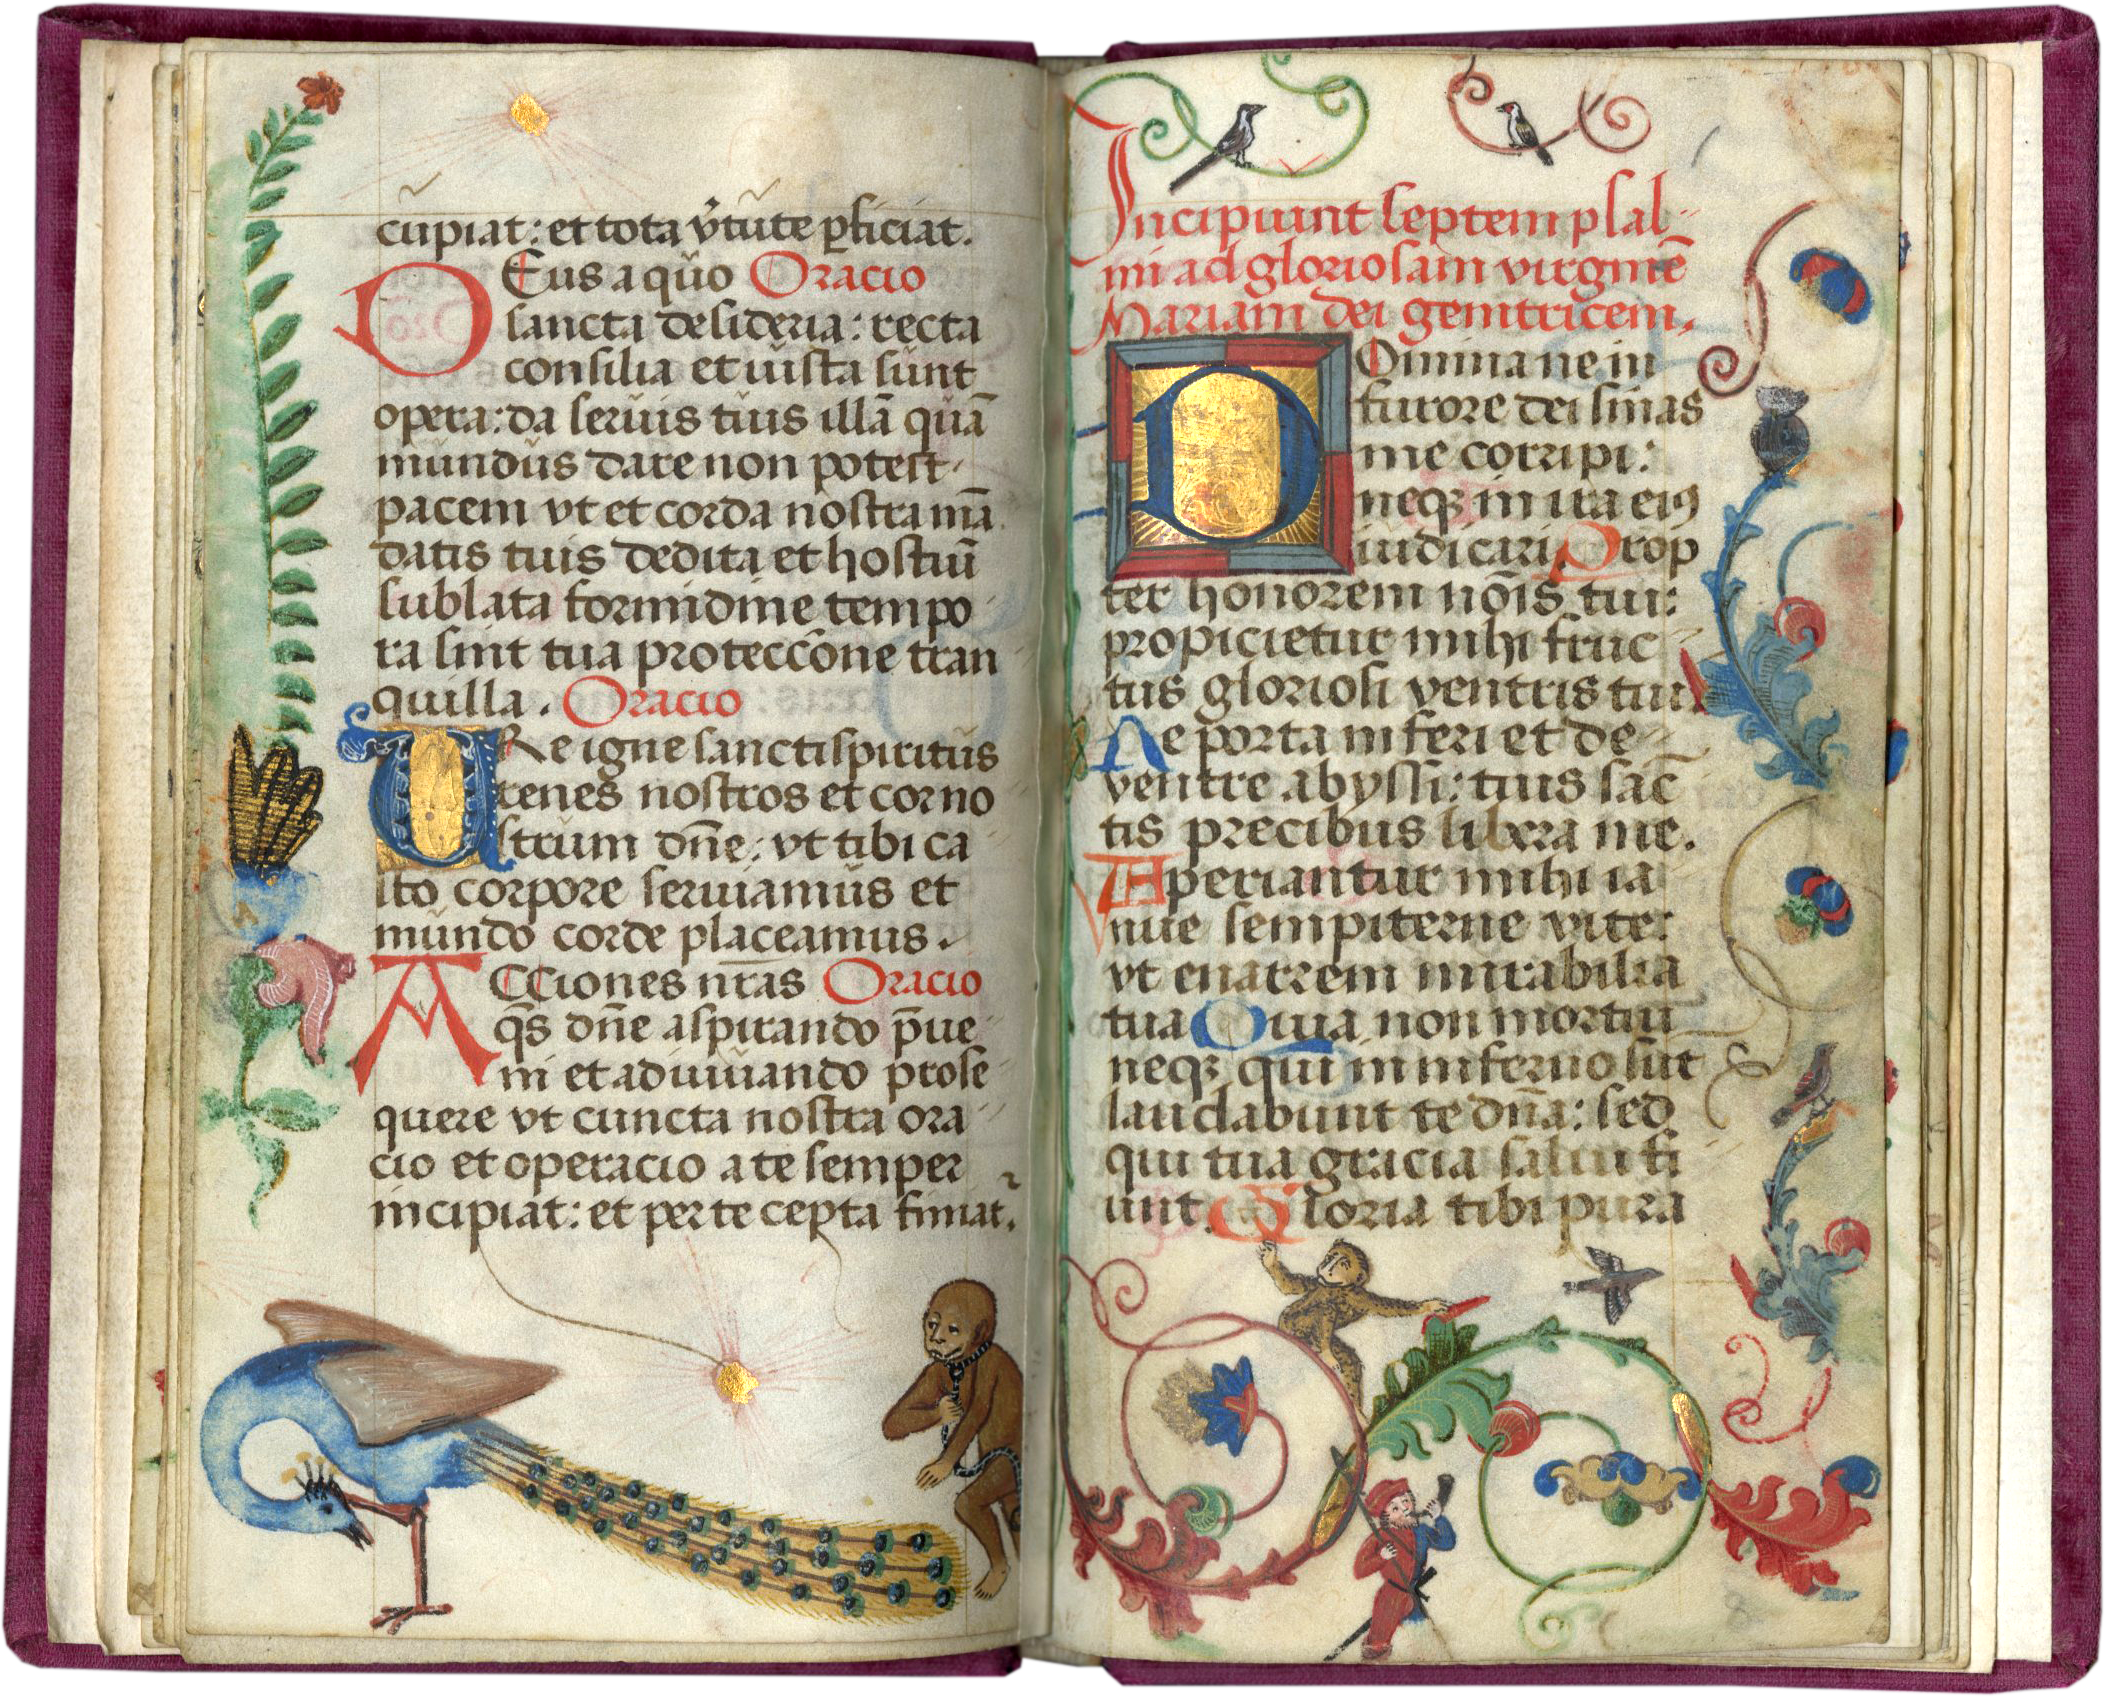 cupiat: et tota v̓tute ꝑficiat.
DEus a quo Oracio
sancta desideria: recta
consilia et iusta sunt
opera: da seruis tuis illā quā
mundus dare non potest
pacem vt et corda nostra mā
datis tuis dedita et hostiū
sublata formidine tempo
ra sint tua proteccōne tran
quilla. Oracio
URe igne sancti spiritus
renes nostros et cor no
strum dn̄e: vt tibi ca
sto corpore seruiamus et
mundo corde placeamus.
ACciones nr̄as Oracio
qs̄ dn̄e aspirando p̄ue
ni et adiuuando prose
quere vt cuncta nostra ora
cio et operacio a te semper
incipiat: et per te cepta finiat᷑.
Incipiunt septem psal
mi ad gloriosam virginē
Mariam dei genitricem.
DOmina ne in
furore dei sinas
me corripi:
neqꝫ in ira eiꝰ
iudicari. Prop
ter honorem nōis tui:
propicietur mihi fruc
tus gloriosi ventris tui.
Ae porta inferi et de
ventre abyssi: tuis sāc
tis precibus libera me.
Aperiantur mihi ia
nue sempiterne vite:
vt enarrem mirabilia
tua Quia non mortui
neqꝫ qui in inferno sūt
laudabunt te dn̄a: sed
qui tua gracia salui fi
unt. Gloria tibi pura
8